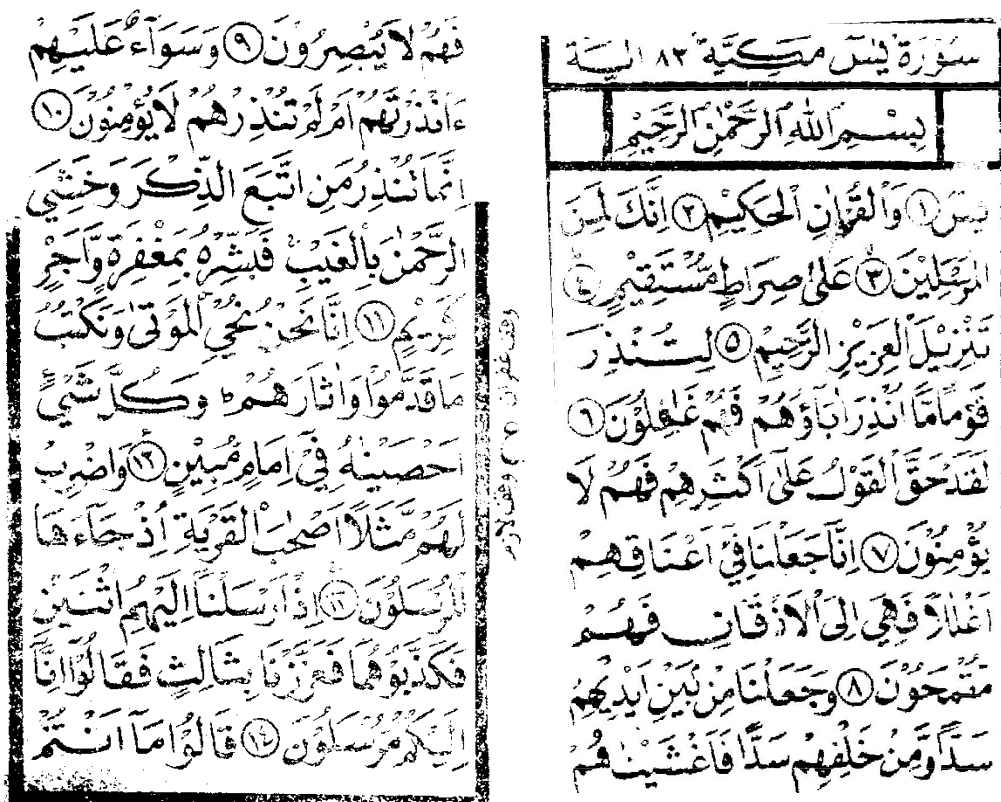 سُوْرَةُ يٰسٓ مَكِّيَّةٌ ٨٣ اٰيَة
بِسْمِ اللهِ الرَّحْمٰنِ الرَّحِيْمِ
يٰسٓ ١ وَالْقُرْاٰنِ الْحَكِيْمِ ٢ اِنَّكَ لَمِنَ
الْمُرْسَلِيْنَ ٣ عَلٰى صِرَاطٍ مُّسْتَقِيْمٍ ٤
تَنْزِيْلَ الْعَزِيْزِ الرَّحِيْمِ ٥ لِتُنْذِرَ
قَوْمًا مَّا اُنْذِرَ اٰبَاؤُهُمْ فَهُمْ غٰفِلُوْنَ ٦
لَقَدْ حَقَّ الْقَوْلُ عَلٰى اَكْثَرِهِمْ فَهُمْ لَا
يُؤْمِنُوْنَ ٧ اِنَّا جَعَلْنَا فِيْٓ اَعْنَاقِهِمْ
اَغْلٰلًا فَهِيَ اِلَى الْاَذْقَانِ فَهُمْ
مُّقْمَحُوْنَ ٨ وَجَعَلْنَا مِنْۢ بَيْنِ اَيْدِيْهِمْ
سَدًّا وَّمِنْ خَلْفِهِمْ سَدًّا فَاَغْشَيْنٰهُمْ
فَهُمْ لَا يُبْصِرُوْنَ ٩ وَسَوَآءٌ عَلَيْهِمْ
ءَاَنْذَرْتَهُمْ اَمْ لَمْ تُنْذِرْهُمْ لَا يُؤْمِنُوْنَ ١٠
اِنَّمَا تُنْذِرُ مَنِ اتَّبَعَ الذِّكْرَ وَخَشِيَ
الرَّحْمٰنَ بِالْغَيْبِ فَبَشِّرْهُ بِمَغْفِرَةٍ وَّاَجْرٍ
كَرِيْمٍ ١١ اِنَّا نَحْنُ نُحْيِ الْمَوْتٰى وَنَكْتُبُ
مَا قَدَّمُوْا وَاٰثَارَهُمْ ط وَكُلَّ شَيْءٍ
اَحْصَيْنٰهُ فِيْٓ اِمَامٍ مُّبِيْنٍ ١٢ وَاضْرِبْ
لَهُمْ مَّثَلًا اَصْحٰبَ الْقَرْيَةِ اِذْ جَآءَهَا
الْمُرْسَلُوْنَ ١٣ اِذْ اَرْسَلْنَا اِلَيْهِمُ اثْنَيْنِ
فَكَذَّبُوْهُمَا فَعَزَّزْنَا بِثَالِثٍ فَقَالُوْٓا اِنَّا
اِلَيْكُمْ مُّرْسَلُوْنَ ١٤ قَالُوْا مَآ اَنْتُمْ
وقف غفران
وقف لازم